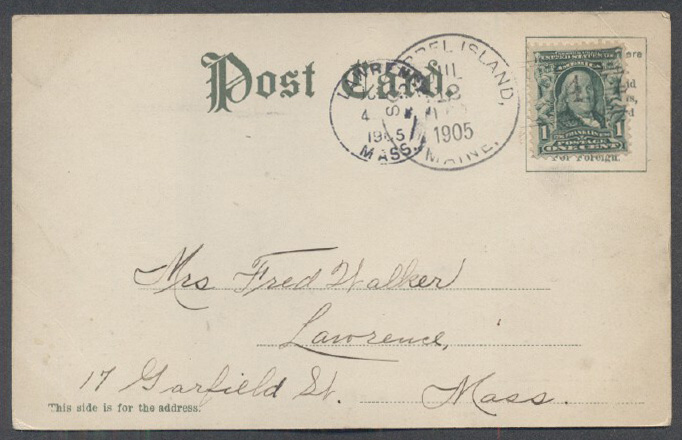 Post Card.
LAWRENCE
4
1905
MASS.
ISLAND,
1905
MAINE.
UNITED STATES OF AMERICA
1 1
POSTAGE
ONE CENT
For Foreign
Mrs Fred Walker
Lawrence,
17 Garfield St. Mass.
This side is for the address.